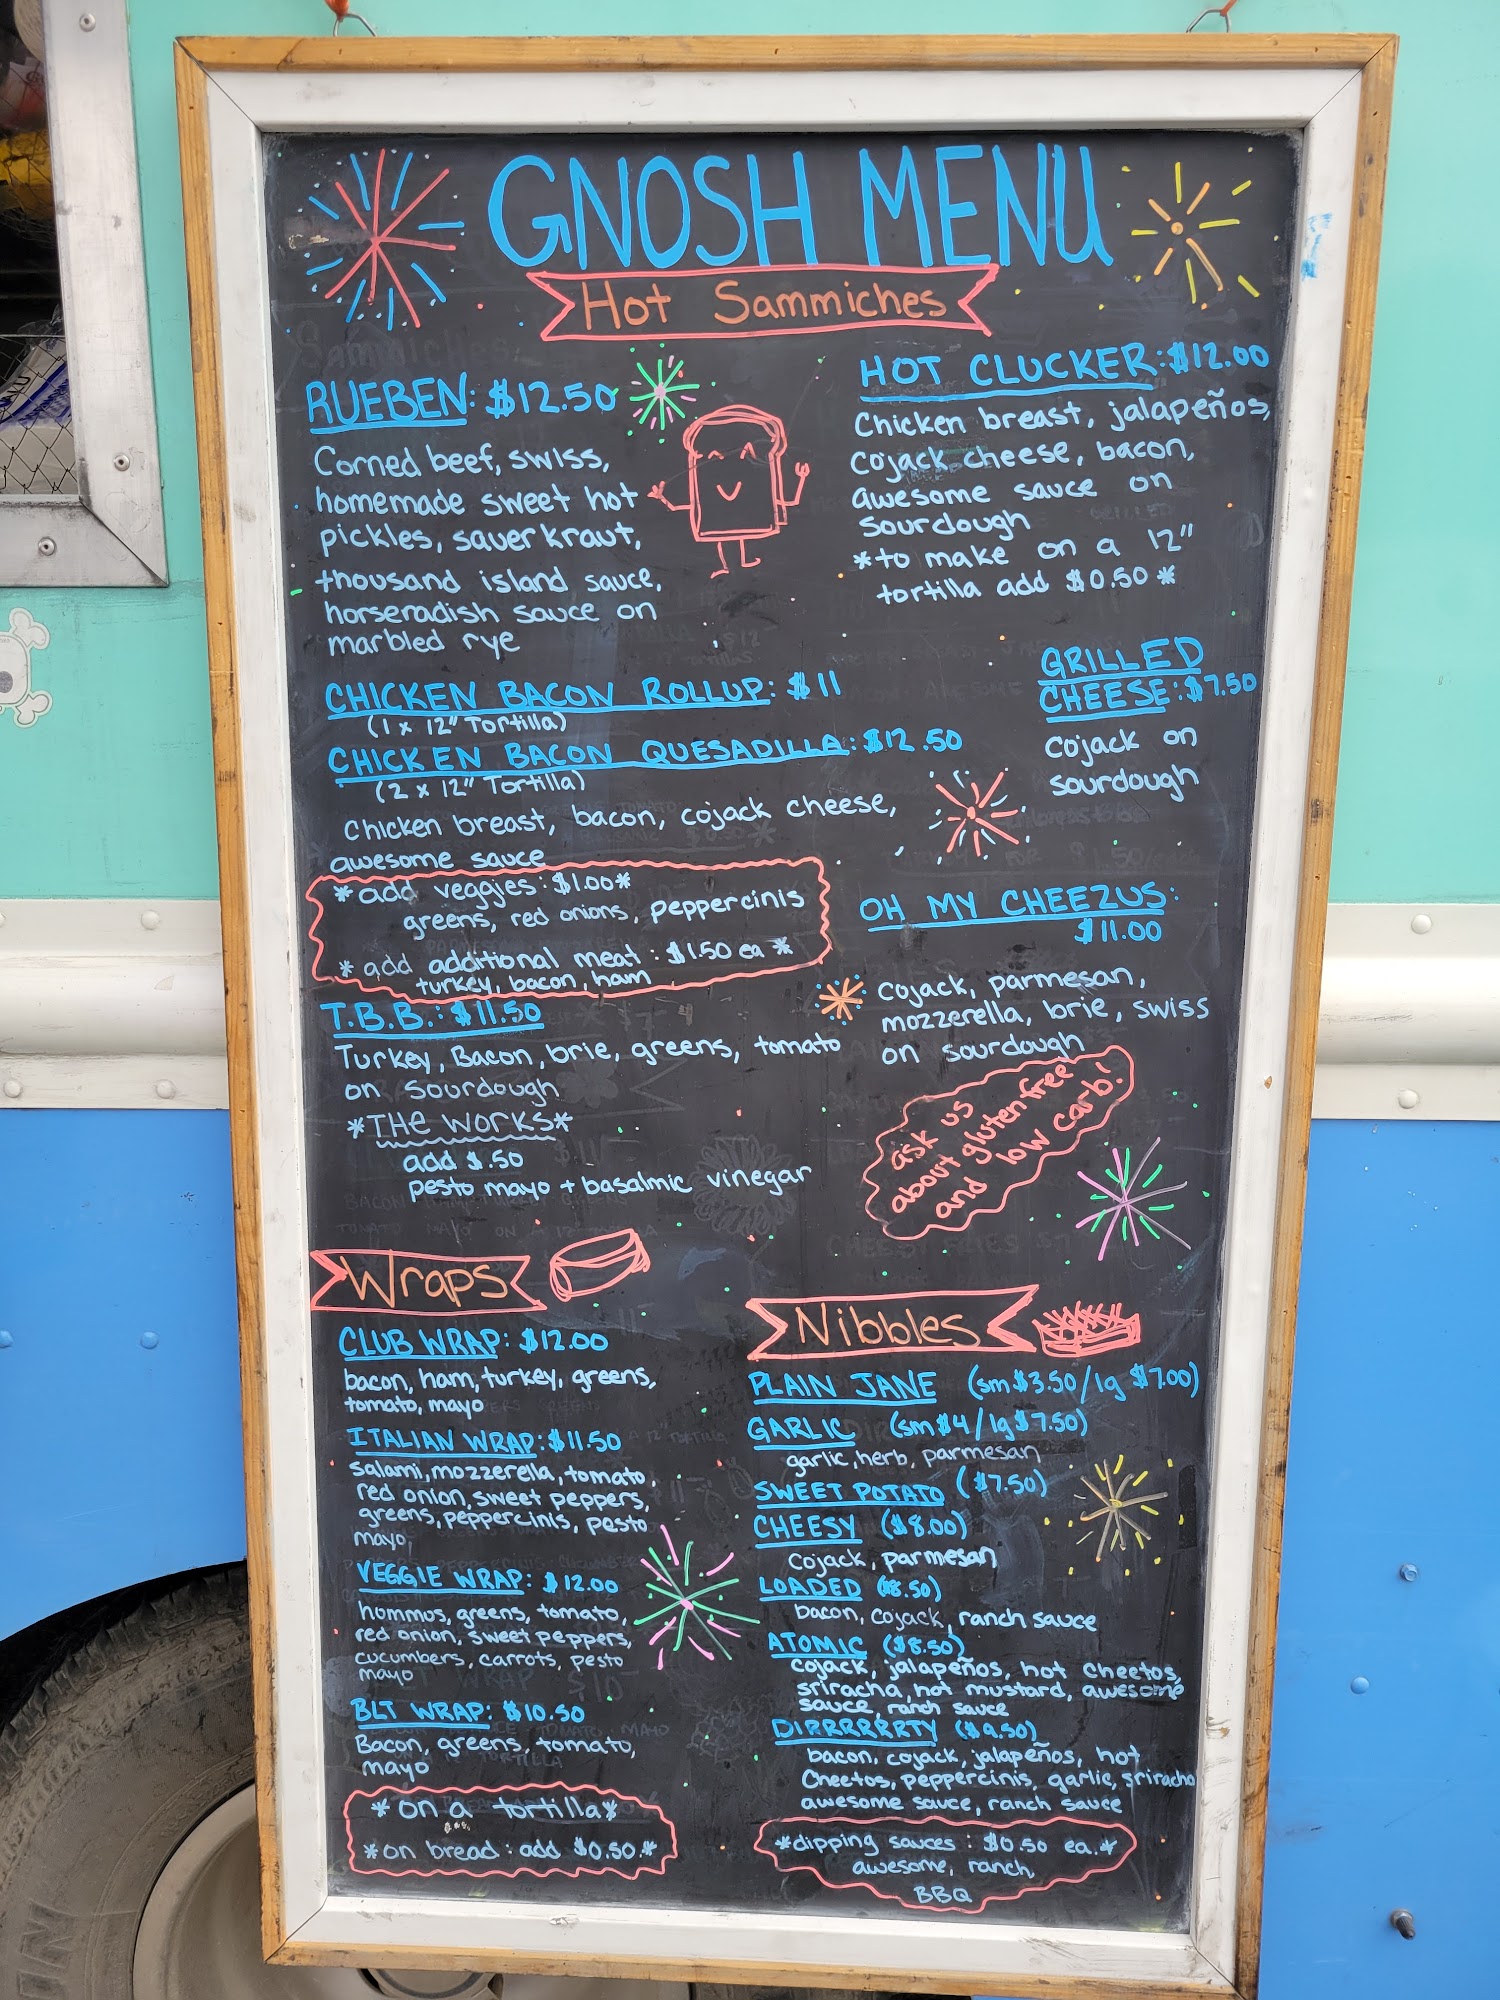 GNOSH MENU
Hot Sammiches
RUEBEN: $12.50
Corned beef, swiss,
homemade sweet hot
pickles, sauerkraut,
thousand island sauce,
horseradish sauce on
marbled rye
HOT CLUCKER: $12.00
Chicken breast, jalapeños,
cojack cheese, bacon,
awesome sauce on
sourdough
*to make on a 12"
tortilla add $0.50*
CHICKEN BACON ROLLUP: $11
(1 x 12" Tortilla)
CHICKEN BACON QUESADILLA: $12.50
(2 x 12" Tortilla)
Chicken breast, bacon, cojack cheese,
awesome sauce
*add veggies: $1.00*
greens, red onions, peppercinis
*add additional meat: $1.50 ea*
turkey, bacon, ham
GRILLED
CHEESE: $7.50
cojack on
sourdough
OH MY CHEEZUS:
$11.00
cojack, parmesan,
mozzerella, brie, swiss
on sourdough
T.B.B.: $11.50
Turkey, Bacon, brie, greens, tomato
on sourdough
*THE WORKS*
add $.50
pesto mayo + basalmic vinegar
ask us
about gluten free
and low carb!
Wraps
CLUB WRAP: $12.00
bacon, ham, turkey, greens,
tomato, mayo
ITALIAN WRAP: $11.50
salami, mozzerella, tomato,
red onion, sweet peppers,
greens, peppercinis, pesto
mayo,
VEGGIE WRAP: $12.00
hummus, greens, tomato,
red onion, sweet peppers,
cucumbers, carrots, pesto
mayo
BLT WRAP: $10.50
Bacon, greens, tomato,
mayo
*on a tortilla*
*on bread: add $0.50*
Nibbles
PLAIN JANE (sm $3.50/lg $7.00)
GARLIC (sm $4/lg $7.50)
garlic, herb, parmesan
SWEET POTATO ($7.50)
CHEESY ($8.00)
cojack, parmesan
LOADED ($8.50)
bacon, cojack, ranch sauce
ATOMIC ($8.50)
cojack, jalapeños, hot cheetos,
sriracha, hot mustard, awesome
sauce, ranch sauce
DIRRRRRRTY ($9.50)
bacon, cojack, jalapeños, hot
Cheetos, peppercinis, garlic, sriracha
awesome sauce, ranch sauce
*dipping sauces: $0.50 ea.*
awesome, ranch,
BBQ